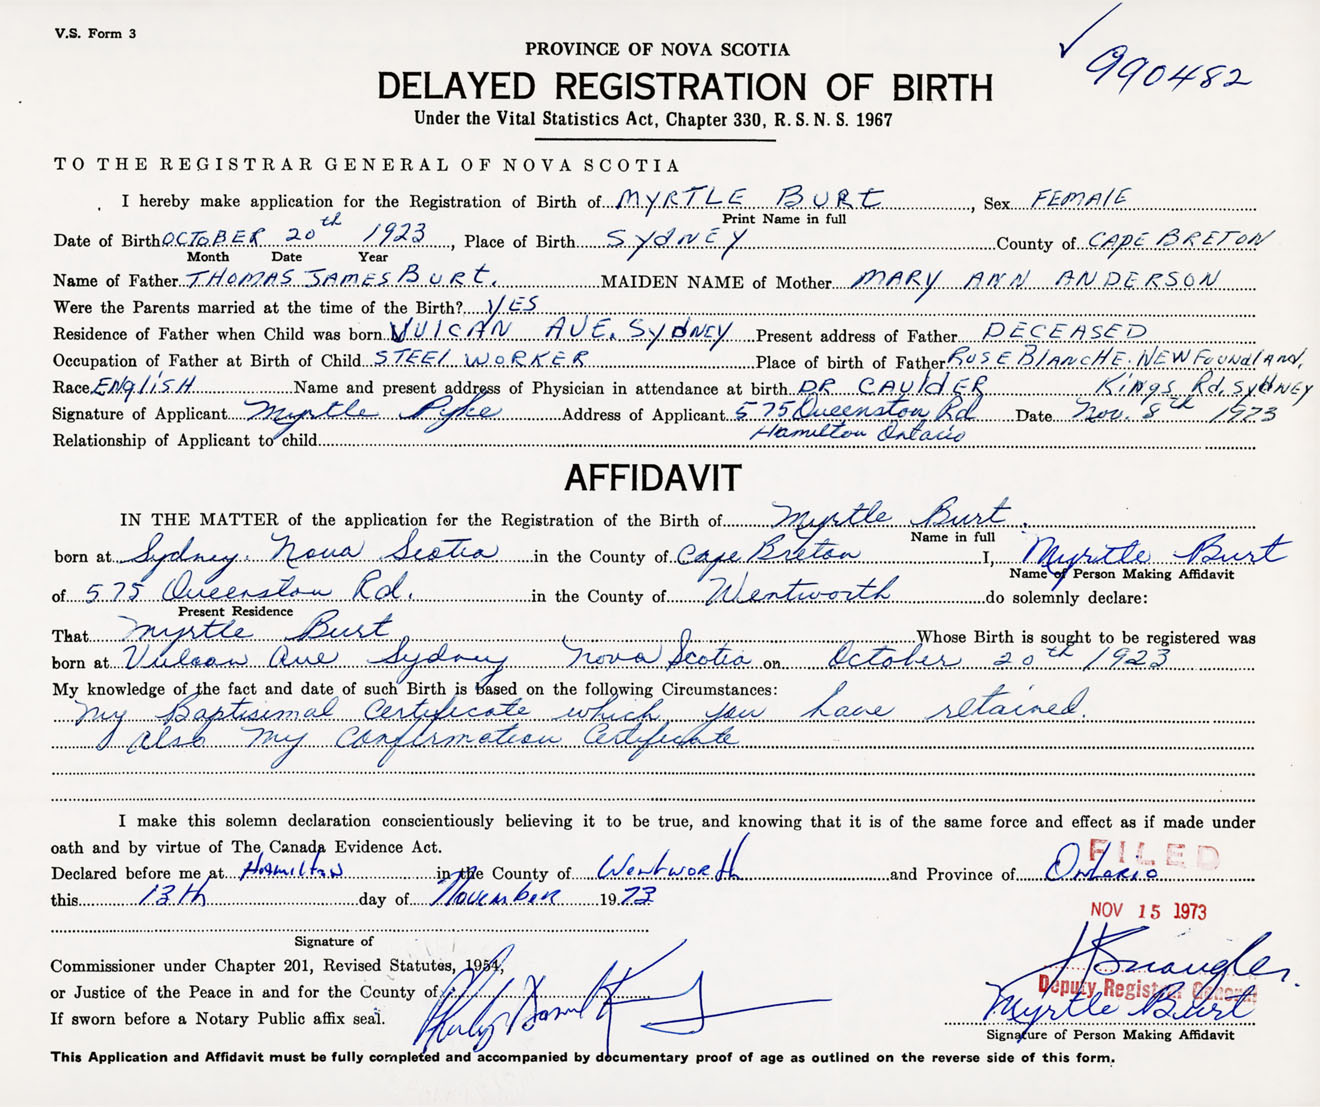 V.S. Form 3
PROVINCE OF NOVA SCOTIA
990482
DELAYED REGISTRATION OF BIRTH
Under the Vital Statistics Act, Chapter 330, R.S.N.S. 1967
TO THE REGISTRAR GENERAL OF NOVA SCOTIA
I hereby make application for the Registration of Birth of MYRTLE BURT, Sex FEMALE
Print Name in full
Date of Birth OCTOBER 20th 1923, Place of Birth SYDNEY County of CAPE BRETON
Month Date Year
Name of Father THOMAS JAMES BURT. MAIDEN NAME of Mother MARY ANN ANDERSON
Were the Parents married at the time of the Birth? YES
Residence of Father when Child was born VULCAN AVE. SYDNEY Present address of Father DECEASED
Occupation of Father at Birth of Child STEEL WORKER Place of birth of Father ROSE BLANCHE. NEWFOUNDLAND.
Race ENGLISH Name and present address of Physician in attendance at birth DR CAULDER Kings Rd. SYDNEY
Signature of Applicant Myrtle Pyke Address of Applicant 575 Queenston Rd Date Nov. 8th 1973
Hamilton Ontario
Relationship of Applicant to child
AFFIDAVIT
IN THE MATTER of the application for the Registration of the Birth of Myrtle Burt.
Name in full
born at Sydney. Nova Scotia in the County of Cape Breton I, Myrtle Burt
Name of Person Making Affidavit
of 575 Queenston Rd. in the County of Wentworth do solemnly declare:
Present Residence
That Myrtle Burt Whose Birth is sought to be registered was
born at Vulcan Ave Sydney Nova Scotia on October 20th 1923
My knowledge of the fact and date of such Birth is based on the following Circumstances:
My Baptisimal Certificate which you have retained.
Also my Confirmation Certificate
I make this solemn declaration conscientiously believing it to be true, and knowing that it is of the same force and effect as if made under
oath and by virtue of The Canada Evidence Act.
FILED
Declared before me at Hamilton in the County of Wentworth and Province of Ontario
this 13th day of November 1973
NOV 15 1973
Signature of
Commissioner under Chapter 201, Revised Statutes, 1954,
Deputy Registrar General
or Justice of the Peace in and for the County of
If sworn before a Notary Public affix seal.
Myrtle Burt
Signature of Person Making Affidavit
This Application and Affidavit must be fully completed and accompanied by documentary proof of age as outlined on the reverse side of this form.